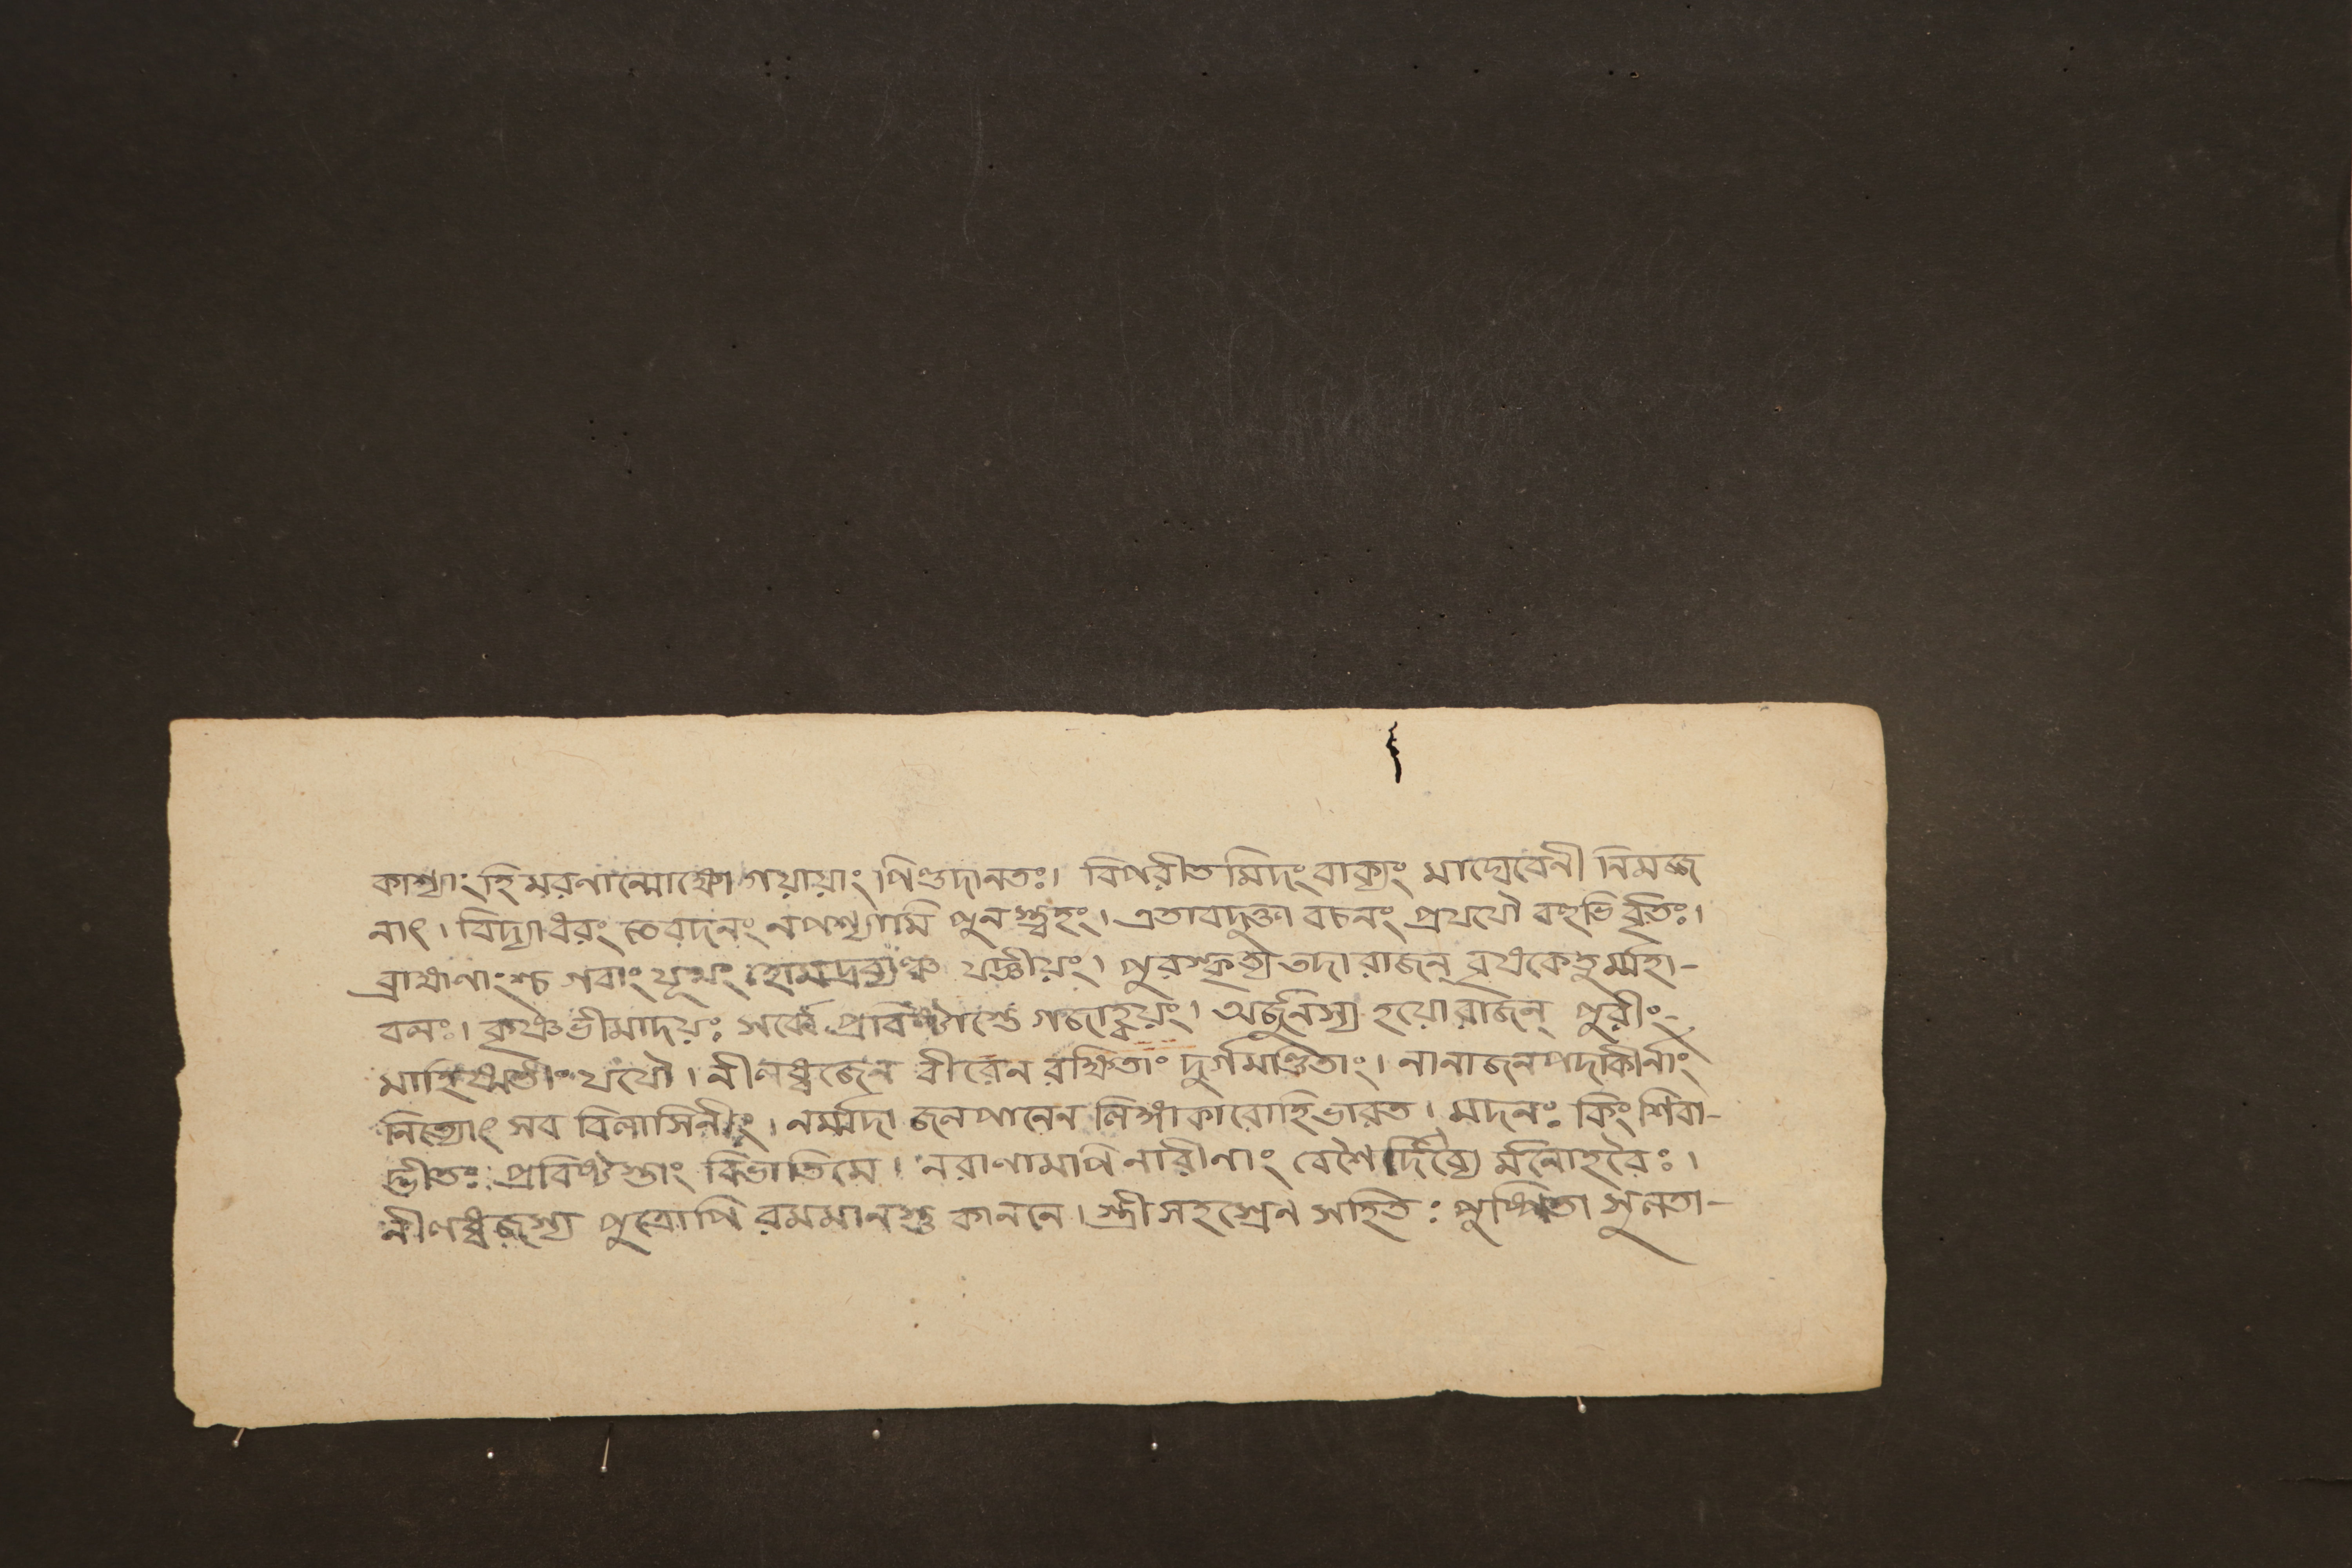 কাশ্যাং হি মরণান্মোক্ষো গয়ায়াং পিণ্ডদানতঃ। বিপরীতমিদং বাক্যং মাঘ্যেবেনী নিমজ্জ
নাৎ। বিদ্যাধরং তে বদনং ন পশ্যামি পুনস্ত্বহং। এতাবদুক্তা বচনং প্রযযৌ বহুভির্বৃতঃ।
ব্রাহ্মণাংশ্চ গবাং যূথং হোমদ্রব্যঞ্চ যজ্ঞীয়ং। পুরস্কৃত্য তদা রাজন্ ব্রধকেতুর্ম্মহা-
বলঃ। কৃষ্ণভীমাদয়ঃ সর্ব্বে প্রবিষ্টাস্তে গজাহ্বয়ং। অর্জুনস্য হয়ো রাজন্ পুরীং
মাহিষ্মতীং যযৌ। নীলধ্বজেন বীরেন রক্ষিতাং দুর্গমণ্ডিতাং। নানাজনপদাকীর্নাং
নিত্যোৎসব বিলাসিনীং। নর্ম্মদা জলপানেন লিঙ্গাকারোহি ভারত। মদনঃ কিং শিবা-
দ্ভীতঃ প্রবিষ্টস্তাং বিভাতি মে। নরাণামপি নারীনাং বেশৈর্দিব্যৈ র্মনোহরৈঃ।
নীলধ্বজস্য পুত্রোপি রমমানস্তু কাননে। স্ত্রীসহস্রেন সহিতঃ পুষ্পিতা সুলতা-